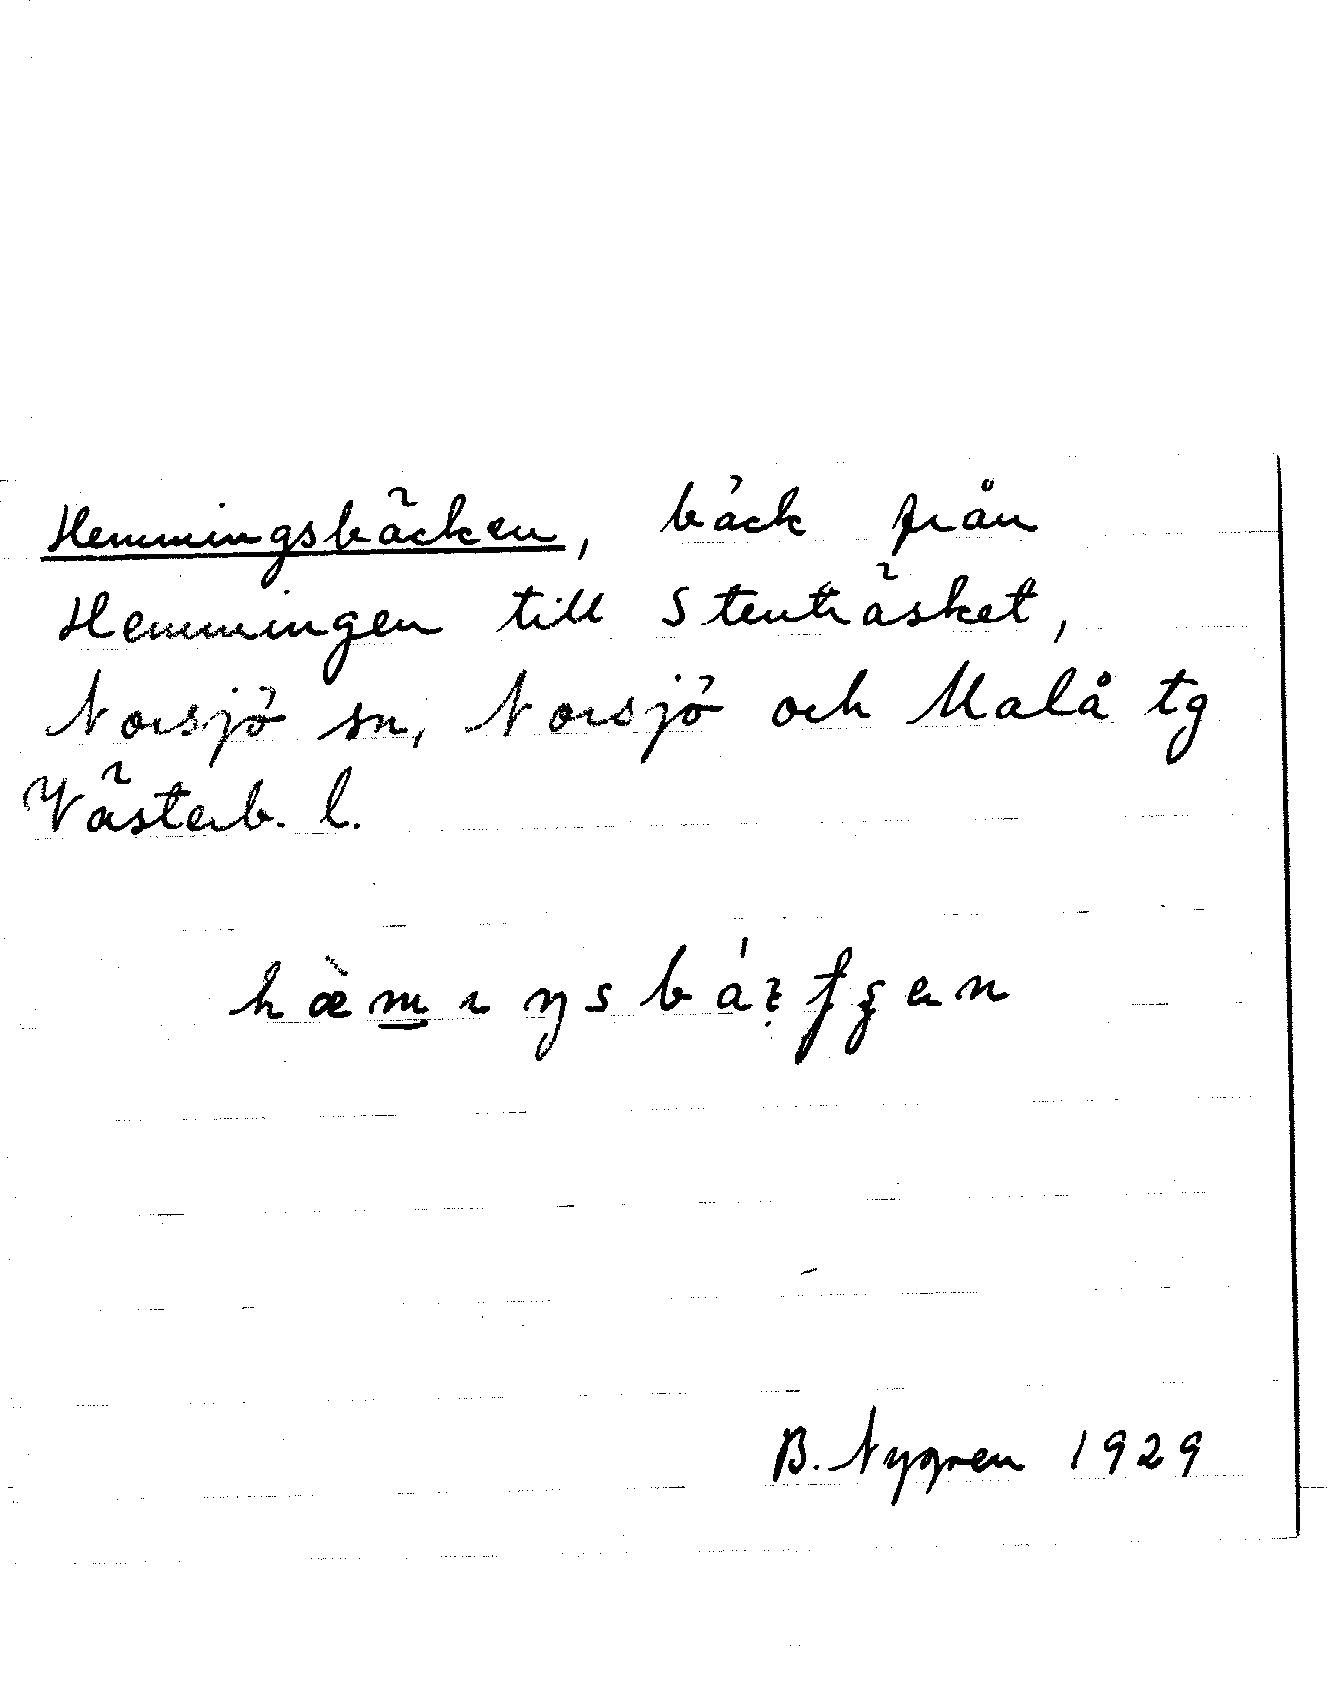 Hemmingsbäcken, bäck från
Hemmingen till Stenträsket,
Norsjö sn, Norsjö och Malå tg
Västerb. l.
B. Nygren 1929